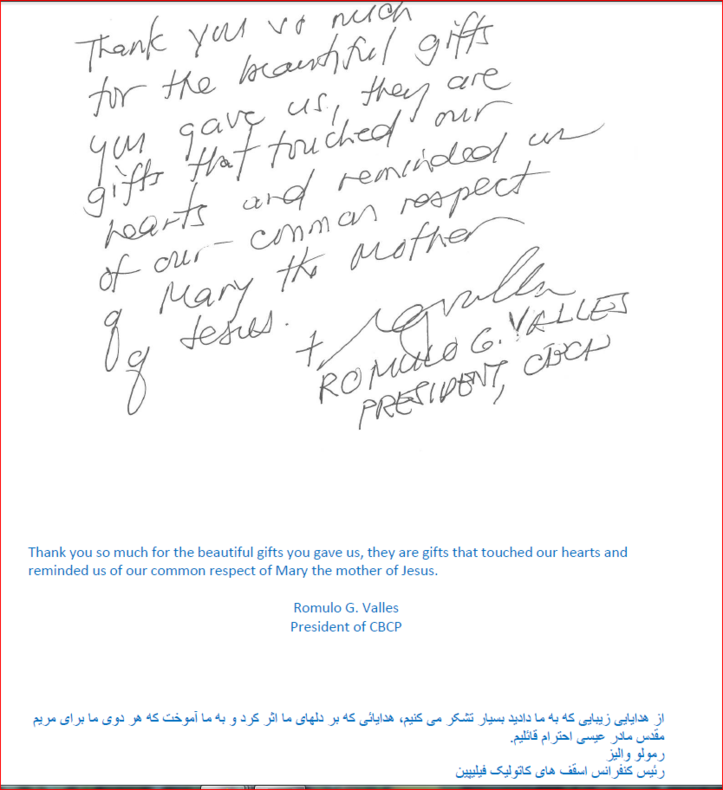 Thank you so much
for the beautiful gifts
you gave us, they are
gifts that touched our
hearts and reminded us
of our common respect
of Mary the mother
of Jesus.
ROMULO G. VALLES
PRESIDENT, CBCP
Thank you so much for the beautiful gifts you gave us, they are gifts that touched our hearts and
reminded us of our common respect of Mary the mother of Jesus.
Romulo G. Valles
President of CBCP
از هدایایی زیبایی که به ما دادید بسیار تشکر می کنیم، هدایائی که بر دلهای ما اثر کرد و به ما آموخت که هر دوی ما برای مریم
مقدس مادر عیسی احترام قائلیم.
رمولو والیز
رئیس کنفرانس اسقف های کاتولیک فیلیپین